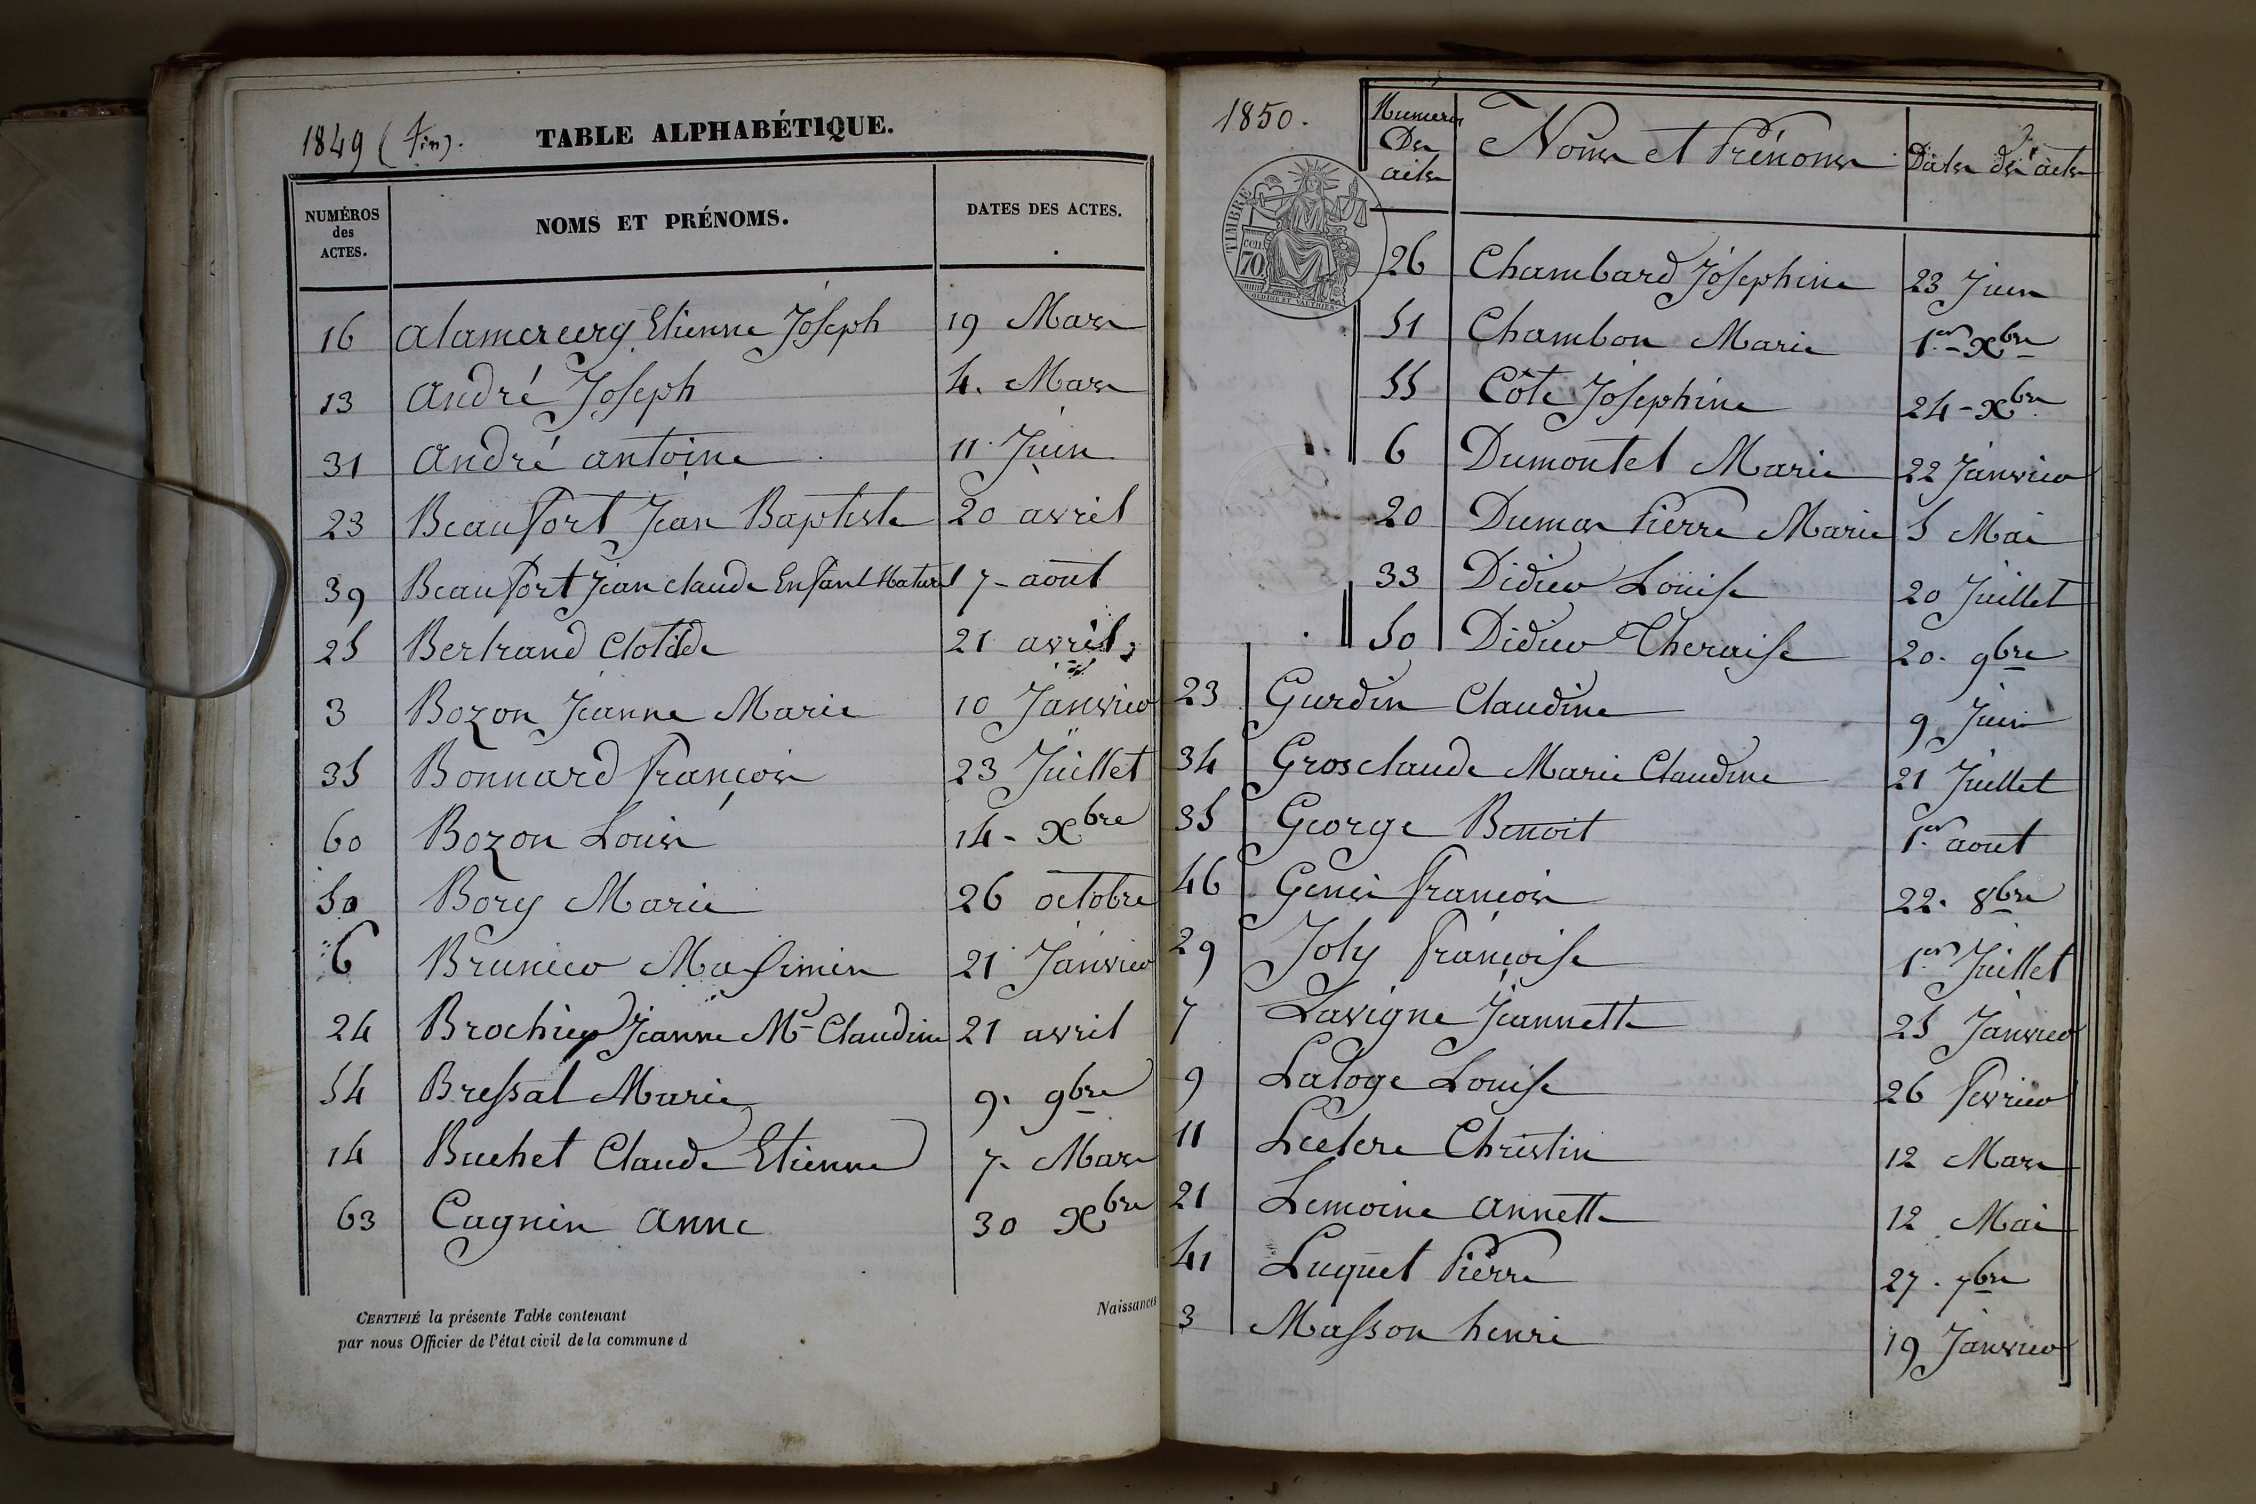 1849 (Fin).
TABLE ALPHABÉTIQUE.
NUMÉROS des ACTES.
NOMS ET PRÉNOMS.
DATES DES ACTES.
16 Alamercery Etienne Joseph 19 Mars
13 André Joseph 4. Mars
31 André Antoine 11 Juin
23 Beaufort Jean Baptiste 20 avril
39 Beaufort Jean Claude Enfant Naturel 7 - août
25 Bertrand Clotilde 21 avril
3 Bozon Jeanne Marie 10 Janvier
35 Bonnard françois 23 Juillet
60 Bozon Louis 14 - Xbre
50 Bory Marie 26 octobre
6 Brunier Maximin 21 Janvier
24 Brochier Jeanne Mie Claudine 21 avril
54 Bressat Marie 9. 9bre
14 Buchet Claude Etienne 7 - Mars
63 Cagnin Anne 30 Xbre
CERTIFIÉ la présente Table contenant
Naissances
par nous Officier de l'état civil de la commune d
1850.
Numéros Des actes
Noms et Prénoms
Dates des actes
TIMBRE
cen. 70
26 Chambard Joséphine 23 Juin
51 Chambon Marie 1er - Xbre
55 Côte Joséphine 24 - Xbre
6 Dumontet Marie 22 Janvier
20 Dumas Pierre Marie 5 Mai
33 Didier Louise 20 Juillet
50 Didier Theraise 20. 9bre
23 Gurdin Claudine 9 Juin
34 Grosclaude Marie Claudine 21 Juillet
35 George Benoit 1er aout
46 françois 22. 8bre
29 Joly françoise 1er Juillet
7 Lavigne Jeannette 25 Janvier
9 Laloge Louise 26 fevrier
11 Leclere Christin 12 Mars
21 Lemoine Annette 12 Mai
41 Luquet Pierre 27. 7bre
3 Masson henri 19 Janvier